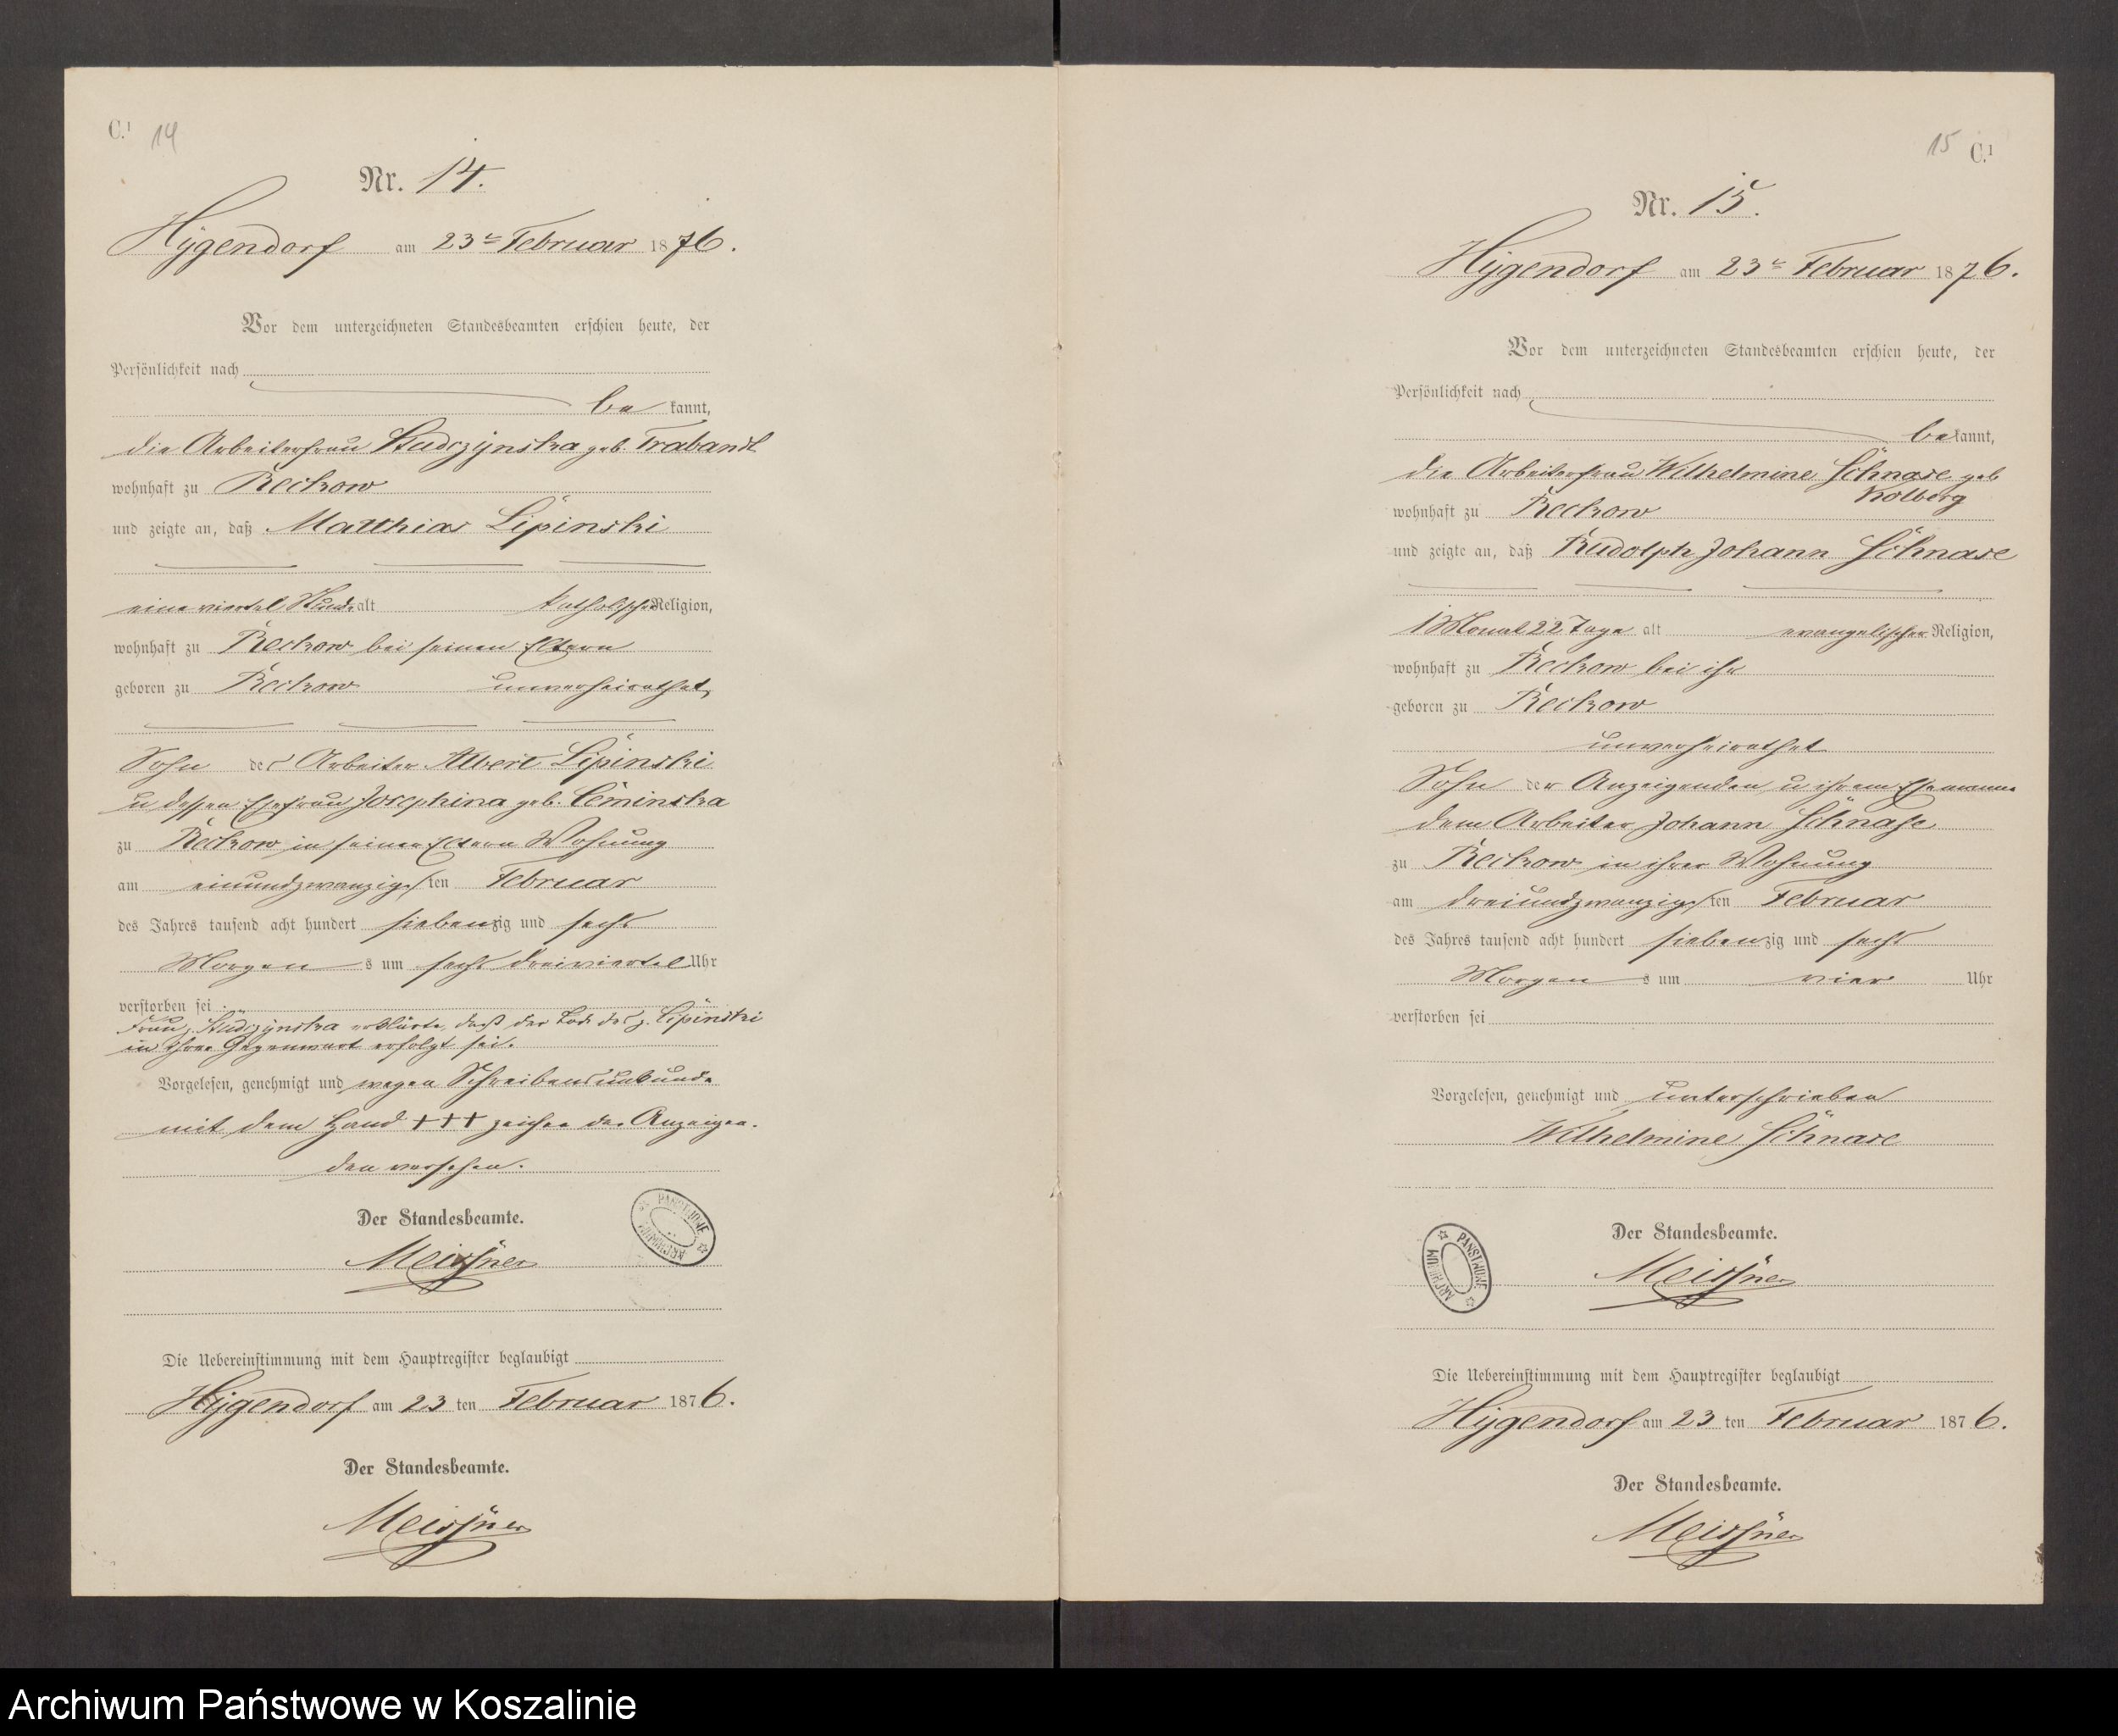 C.¹ 14
Nr. 14.
Hygendorf am 23ten Februar 1876.
Vor dem unterzeichneten Standesbeamten erschien heute, der
Persönlichkeit nach
be kannt,
die Arbeiterfrau Studczynska geb. Trabandt
wohnhaft zu Reckow
und zeigte an, daß Matthias Lipinski
eine viertel Stunde alt katholischer Religion,
wohnhaft zu Reckow bei seinen Eltern
geboren zu Reckow unverheirathet,
Sohn des Arbeiter Albert Lipinski
u dessen Ehefrau Josephina geb. Ceminska
zu Reckow in seiner Eltern Wohnung
am einundzwanzigsten Februar
des Jahres tausend acht hundert siebenzig und sechs
Morgens um sechs dreiviertel Uhr
verstorben sei
Frau Studczynska erklärte, daß der Tod des p. Lipinski
in ihrer Gegenwart erfolgt sei.
Vorgelesen, genehmigt und wegen Schreibensunkunde
mit dem Hand +++ zeichen der Anzeigen-
den versehen.
Der Standesbeamte.
Meissner
ARCHIWUM PAŃSTWOWE
Die Uebereinstimmung mit dem Hauptregister beglaubigt
Hygendorf am 23 ten Februar 1876.
Der Standesbeamte.
Meissner
15 C.¹
Nr. 15.
Hygendorf am 23ten Februar 1876.
Vor dem unterzeichneten Standesbeamten erschien heute, der
Persönlichkeit nach
bekannt,
die Arbeiterfrau Wilhelmine Schnase geb
Kolberg
wohnhaft zu Reckow
und zeigte an, daß Rudolph Johann Schnase
1 Monat 22 Tage alt evangelischer Religion,
wohnhaft zu Reckow bei ihr
geboren zu Reckow
unverheirathet
Sohn der Anzeigenden u ihrem Ehemanne
dem Arbeiter Johann Schnase
zu Reckow in ihrer Wohnung
am dreiundzwanzigsten Februar
des Jahres tausend acht hundert siebenzig und sechs
Morgens um vier Uhr
verstorben sei
Vorgelesen, genehmigt und unterschrieben
Wilhelmine Schnase
Der Standesbeamte.
Meissner
ARCHIWUM PAŃSTWOWE
Die Uebereinstimmung mit dem Hauptregister beglaubigt
Hygendorf am 23 ten Februar 1876.
Der Standesbeamte.
Meissner
Archiwum Państwowe w Koszalinie